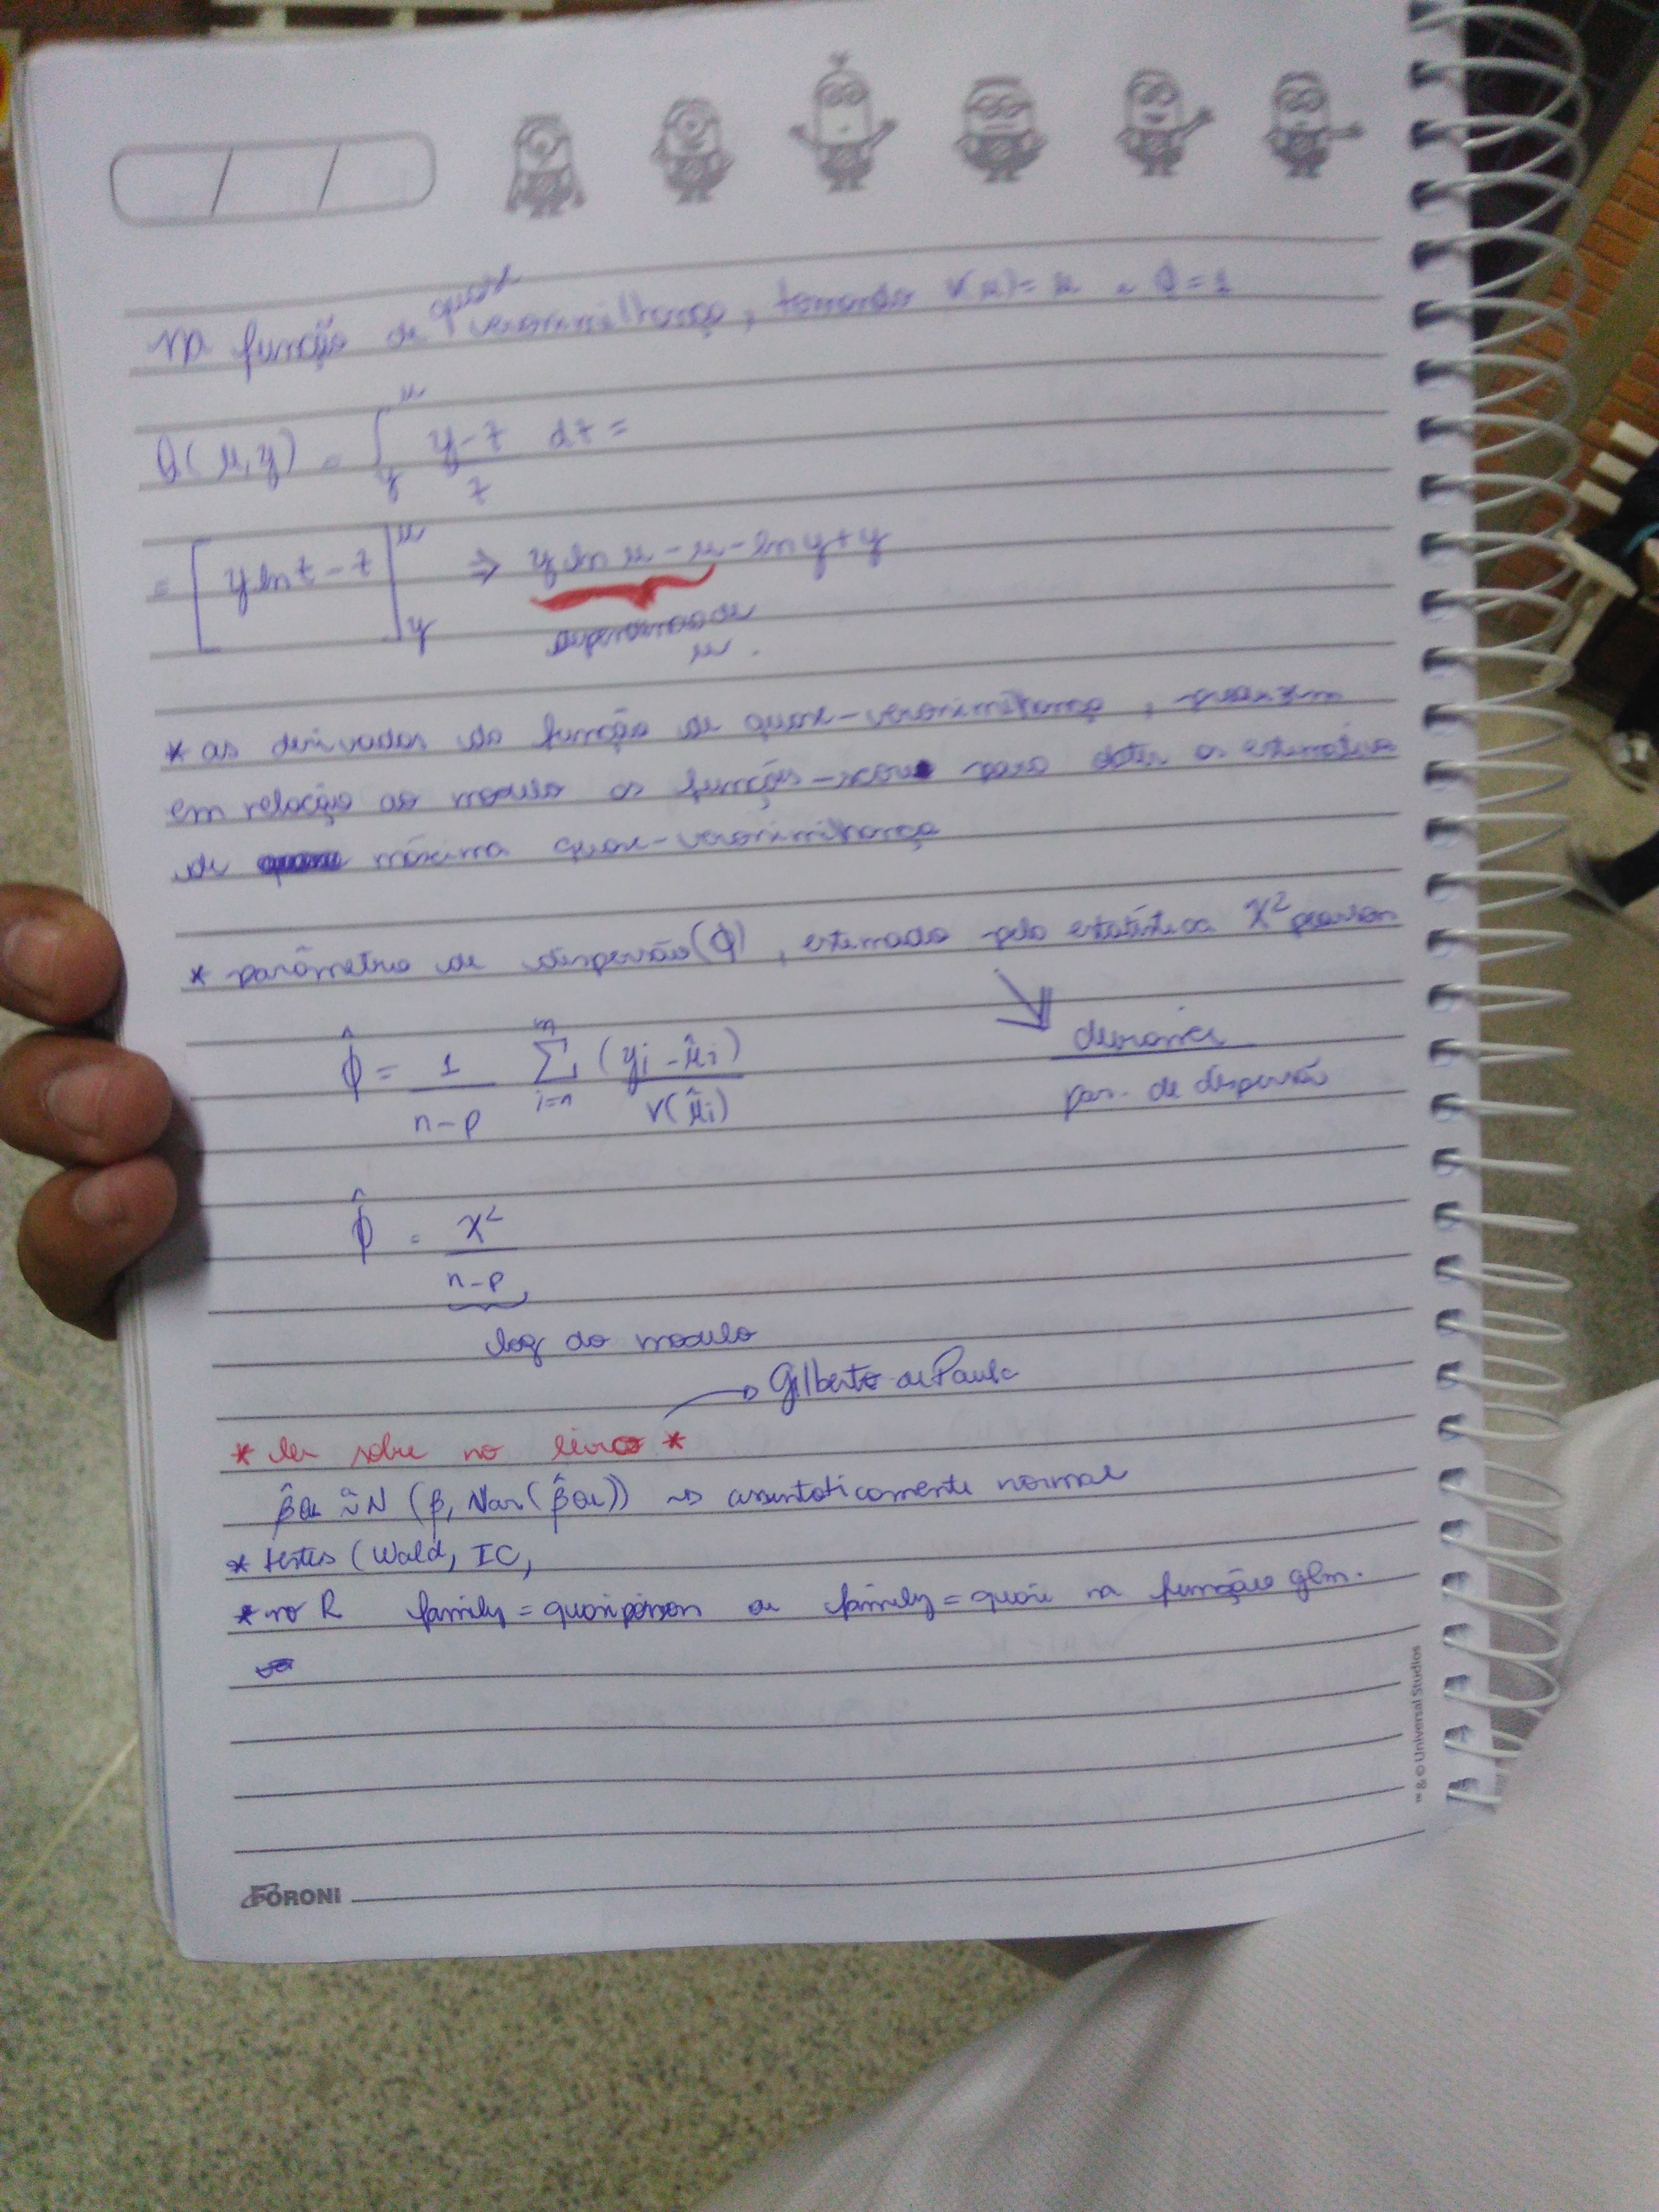 Na função de quasi verossimilhança, tomando V(μ) = μ e φ = 1
Q(μ,y) = ∫_y^μ (y-t)/t dt =
= [y ln t - t]_y^μ ⇒ y ln μ - μ - ln y + y
μ.
* as derivadas da função de quase-verossimilhança,
em relação ao modulo as funções-score para obter as estimativas
de máxima quase-verossimilhança
* parâmetro de dispersão (φ), estimado pela estatística X² pearson
φ̂ = 1/(n-p) Σ_{i=n}^n (yi - μ̂i)/V(μ̂i)
deviance
par. de dispersão
φ̂ = X²/(n-p)
log do modulo
Gilberto de Paula
* ler sobre no livro *
β̂QL ~ N (β, Var(β̂QL)) → assintoticamente normal
* testes (Wald, IC,
* no R family = quasipoisson ou family = quasi na função glm.
™ & © Universal Studios
FORONI